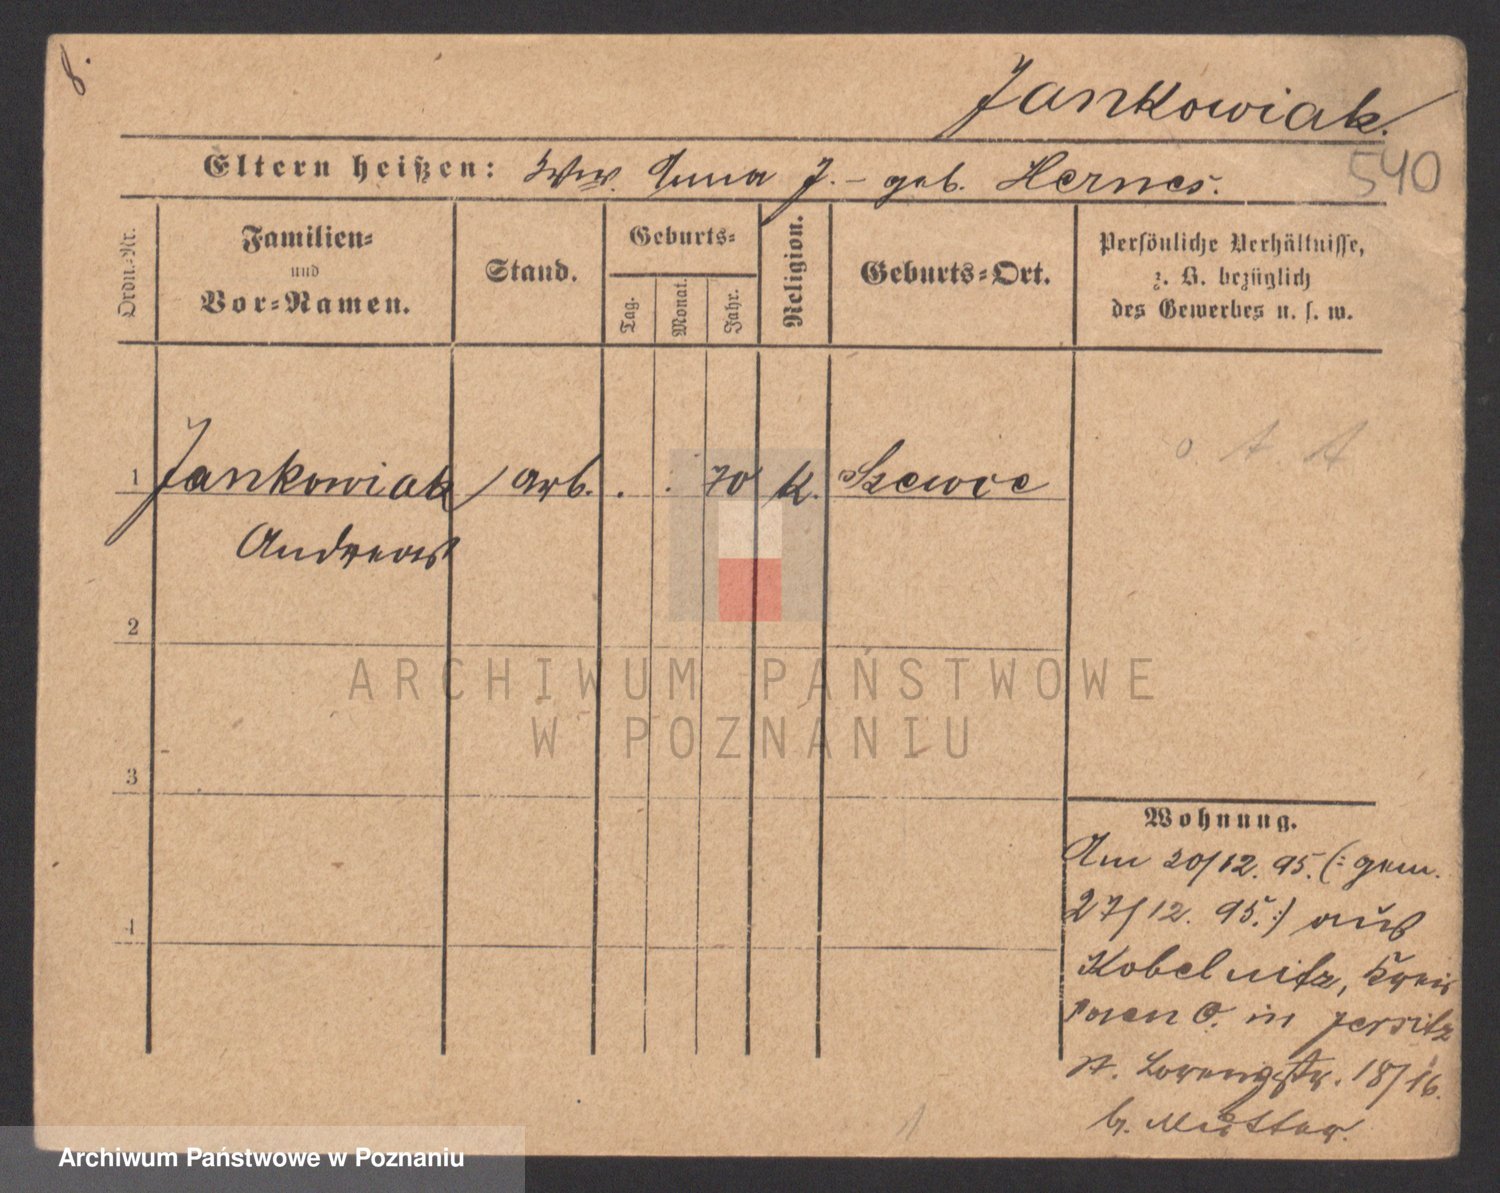 8.
Jankowiak.
540
Eltern heißen: Wwe. Anna J. – geb. Hernes.
Ordn.-Nr.
Familien-
und
Vor-Namen.
Stand.
Geburts-
Tag.
Monat.
Jahr.
Religion.
Geburts-Ort.
Persönliche Verhältnisse,
z. B. bezüglich
des Gewerbes u. s. w.
1 Jankowiak Arb. . . 70 K. Szewce
Andreas
2
3
4
Wohnung.
Am 20/12. 95. (: gem.
27/12. 95. :) aus
Kobelnitz, Kreis
Posen O. in Jersitz
St. Lorenzstr. 18/16.
b. Mutter.
ARCHIWUM PAŃSTWOWE
W POZNANIU
Archiwum Państwowe w Poznaniu